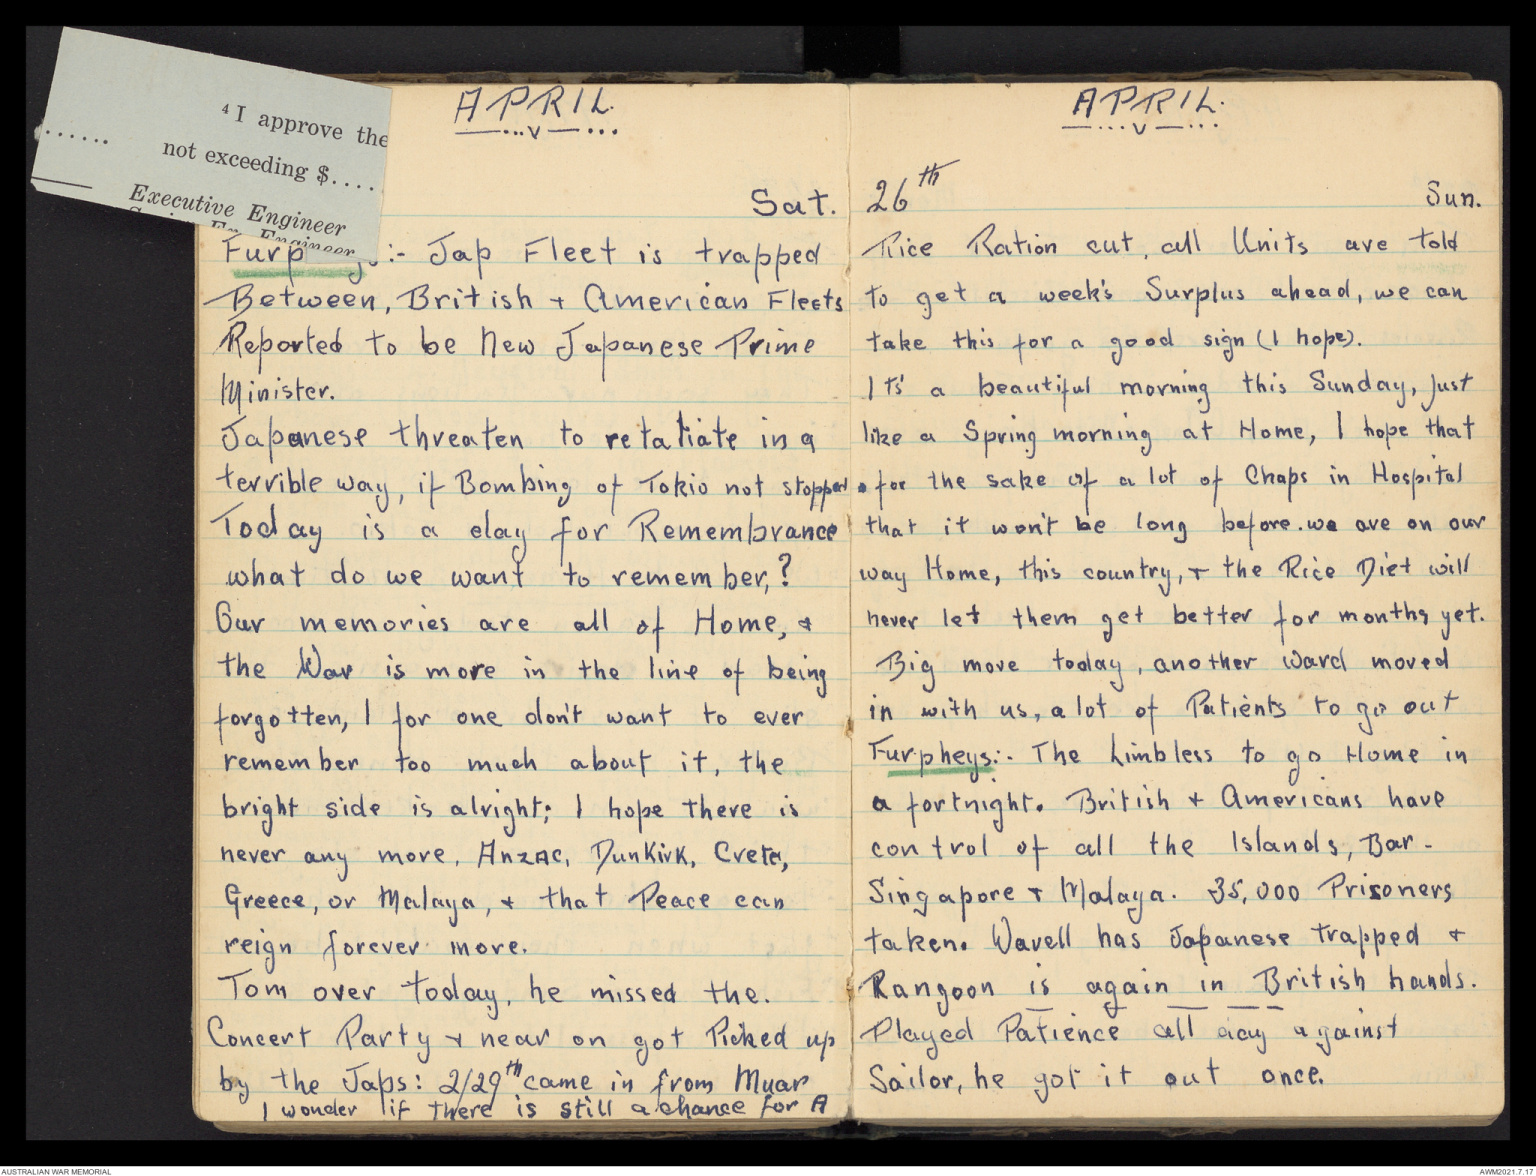 4 I approve the
......
not exceeding $.....
Executive Engineer
Engineer
APRIL.
Sat.
Furp s:- Jap Fleet is trapped
Between, British + American Fleets
Reported to be New Japanese Prime
Minister.
Japanese threaten to retaliate in a
terrible way, if Bombing of Tokio not stopped.
Today is a day for Remembrance
what do we want to remember,?
Our memories are all of Home, +
the War is more in the line of being
forgotten, I for one don't want to ever
remember too much about it, the
bright side is alright; I hope there is
never any more, Anzac, Dunkirk, Crete,
Greece, or Malaya, + that Peace can
reign forever more.
Tom over today, he missed the.
Concert Party + near on got Picked up
by the Japs: 2/29th came in from Muar
I wonder if there is still a chance for A
APRIL.
26th Sun.
Rice Ration cut, all Units are told
to get a week's Surplus ahead, we can
take this for a good sign (I hope).
Its' a beautiful morning this Sunday, just
like a Spring morning at Home, I hope that
for the sake of a lot of Chaps in Hospital
that it won't be long before we are on our
way Home, this country, + the Rice Diet will
never let them get better for months yet.
Big move today, another Ward moved
in with us, a lot of Patients to go out
Furpheys:- The Limbless to go Home in
a fortnight. British + Americans have
control of all the Islands, Bar-
Singapore + Malaya. 35,000 Prisoners
taken. Wavell has Japanese trapped +
Rangoon is again in British hands.
Played Patience all day against
Sailor, he got it out once.
AUSTRALIAN WAR MEMORIAL
AWM2021.7.17